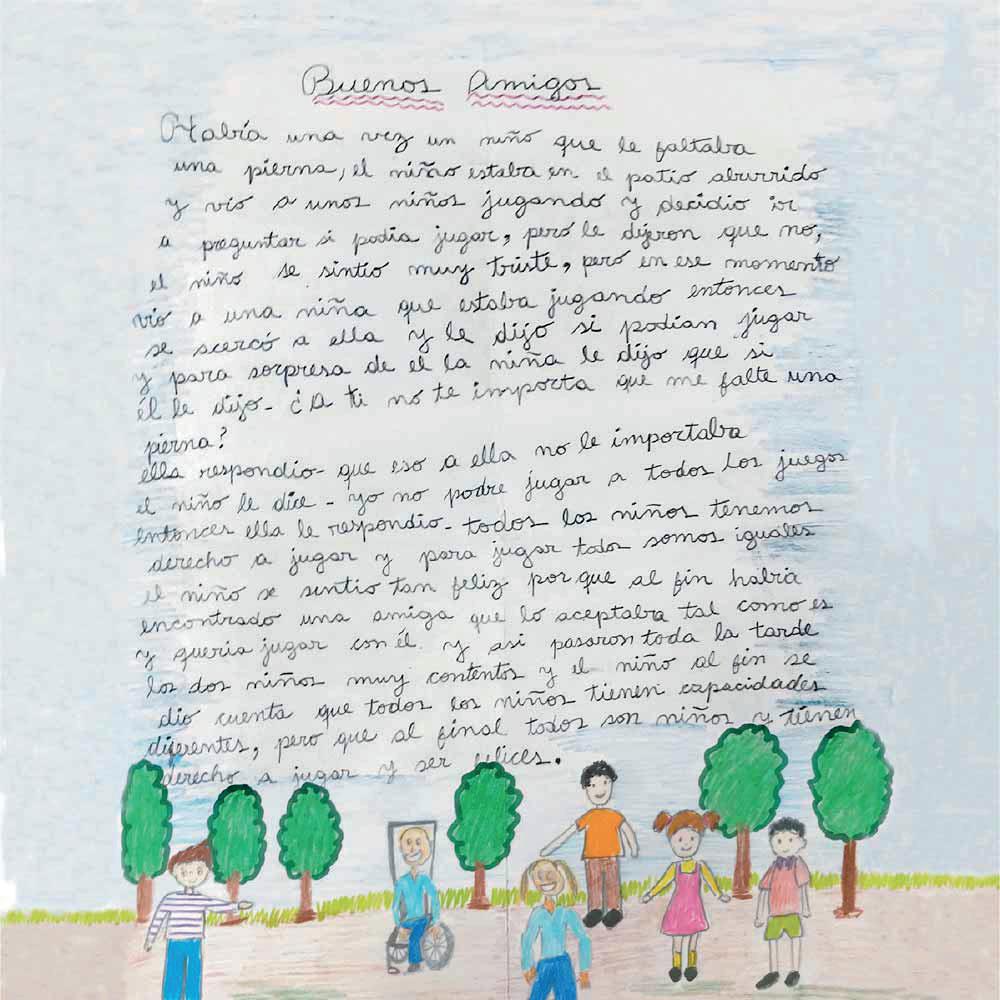 Buenos Amigos
Había una vez un niño que le faltaba
una pierna, el niño estaba en el patio aburrido
y vio a unos niños jugando y decidio ir
a preguntar si podia jugar, peró le dijeron que no,
el niño se sintio muy triste, peró en ese momento
vio a una niña que estaba jugando entonces
se acercó a ella y le dijo si podían jugar
y para sorpresa de el la niña le dijo que si
él le dijo- ¿A ti no te importa que me falte una
pierna?
ella respondio- que eso a ella no le importaba
el niño le dice - yo no podre jugar a todos los juegos
entonces ella le respondio- todos los niños tenemos
derecho a jugar y para jugar todos somos iguales
el niño se sintio tan feliz por que al fin habia
encontrado una amiga que lo aceptaba tal como es
y queria jugar con él. y asi pasaron toda la tarde
los dos niños muy contentos y el niño al fin se
dio cuenta que todos los niños tienen capacidades
diferentes, pero que al final todos son niños y tienen
derecho a jugar y ser felices.